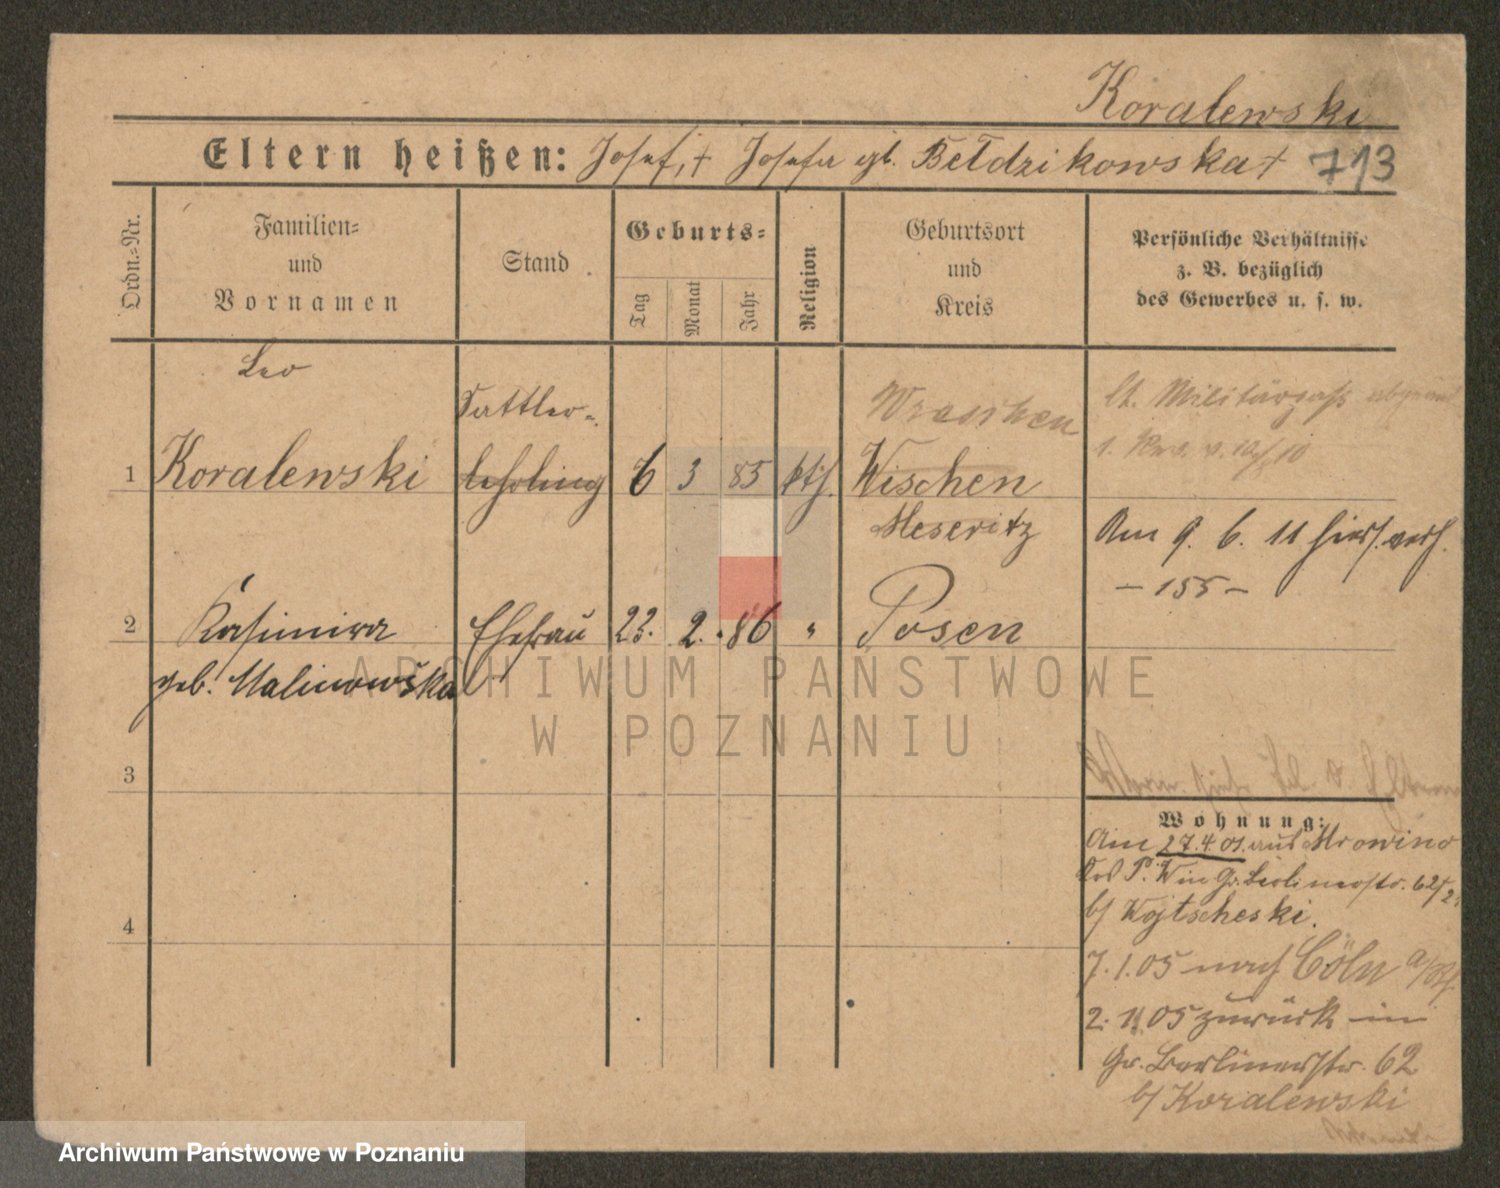 Koralewski
Eltern heißen: Josef, † Josefa gb. Bełdzikowska † 713
Ordn.-Nr.
Familien-
und
Vornamen
Stand
Geburts-
Tag
Monat
Jahr
Religion
Geburtsort
und
Kreis
Persönliche Verhältnisse
z. B. bezüglich
des Gewerbes u. s. w.
Leo
Sattler-
1 Koralewski lehrling 6 3 85 kth. Wischen
Wreschen
Meseritz
lt. Militärpaß
Am 9. 6. 11 hier verh.
- 155 -
2 Kasimira Ehefrau 22. 2. 86 " Posen
geb. Malinowska
3
Wohnung:
Am 27.4.01. aus Mrowino
Krs P. W in Gr. Berlinerstr. 62
b/ Wojtscheski.
4
7.1.05 nach Cöln a/Rh.
2. 11 05 zurück in
Gr. Berlinerstr. 62
b/ Koralewski
ARCHIWUM PAŃSTWOWE
W POZNANIU
Archiwum Państwowe w Poznaniu